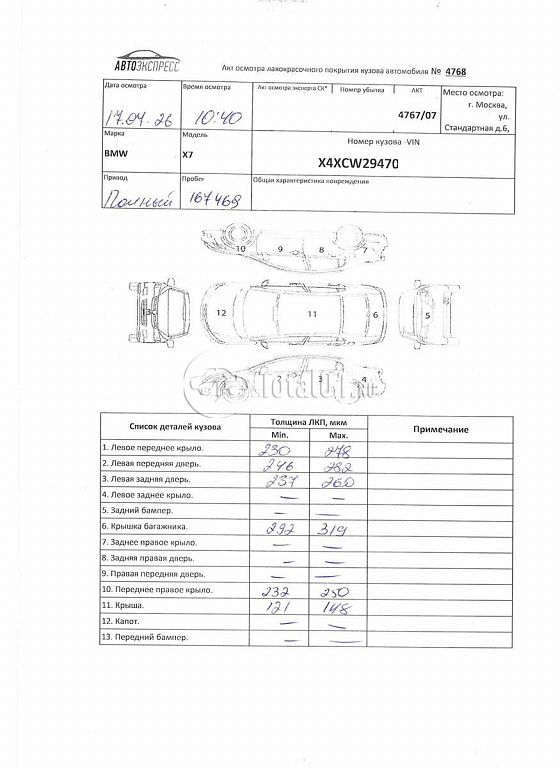 АВТОЭКСПРЕСС
Акт осмотра лакокрасочного покрытия кузова автомобиля № 4768
Дата осмотра Время осмотра Акт осмотра эксперта СК* Номер убытка АКТ Место осмотра:
17.04.26 10:40 4767/07 г. Москва,
ул.
Стандартная д.6,
Марка Модель Номер кузова -VIN
BMW X7 X4XCW29470
Привод Пробег Общая характеристика повреждения
Полный 167469
10 9 8 7
13 12 11 6 5
1 2 3 4
Total01.ru
Список деталей кузова Толщина ЛКП, мкм Примечание
Min. Max.
1. Левое переднее крыло. 230 278
2. Левая передняя дверь. 246 282
3. Левая задняя дверь. 237 260
4. Левое заднее крыло. — —
5. Задний бампер. — —
6. Крышка багажника. 292 319
7. Заднее правое крыло. — —
8. Задняя правая дверь. — —
9. Правая передняя дверь. — —
10. Переднее правое крыло. 232 250
11. Крыша. 121 148
12. Капот. — —
13. Передний бампер. — —